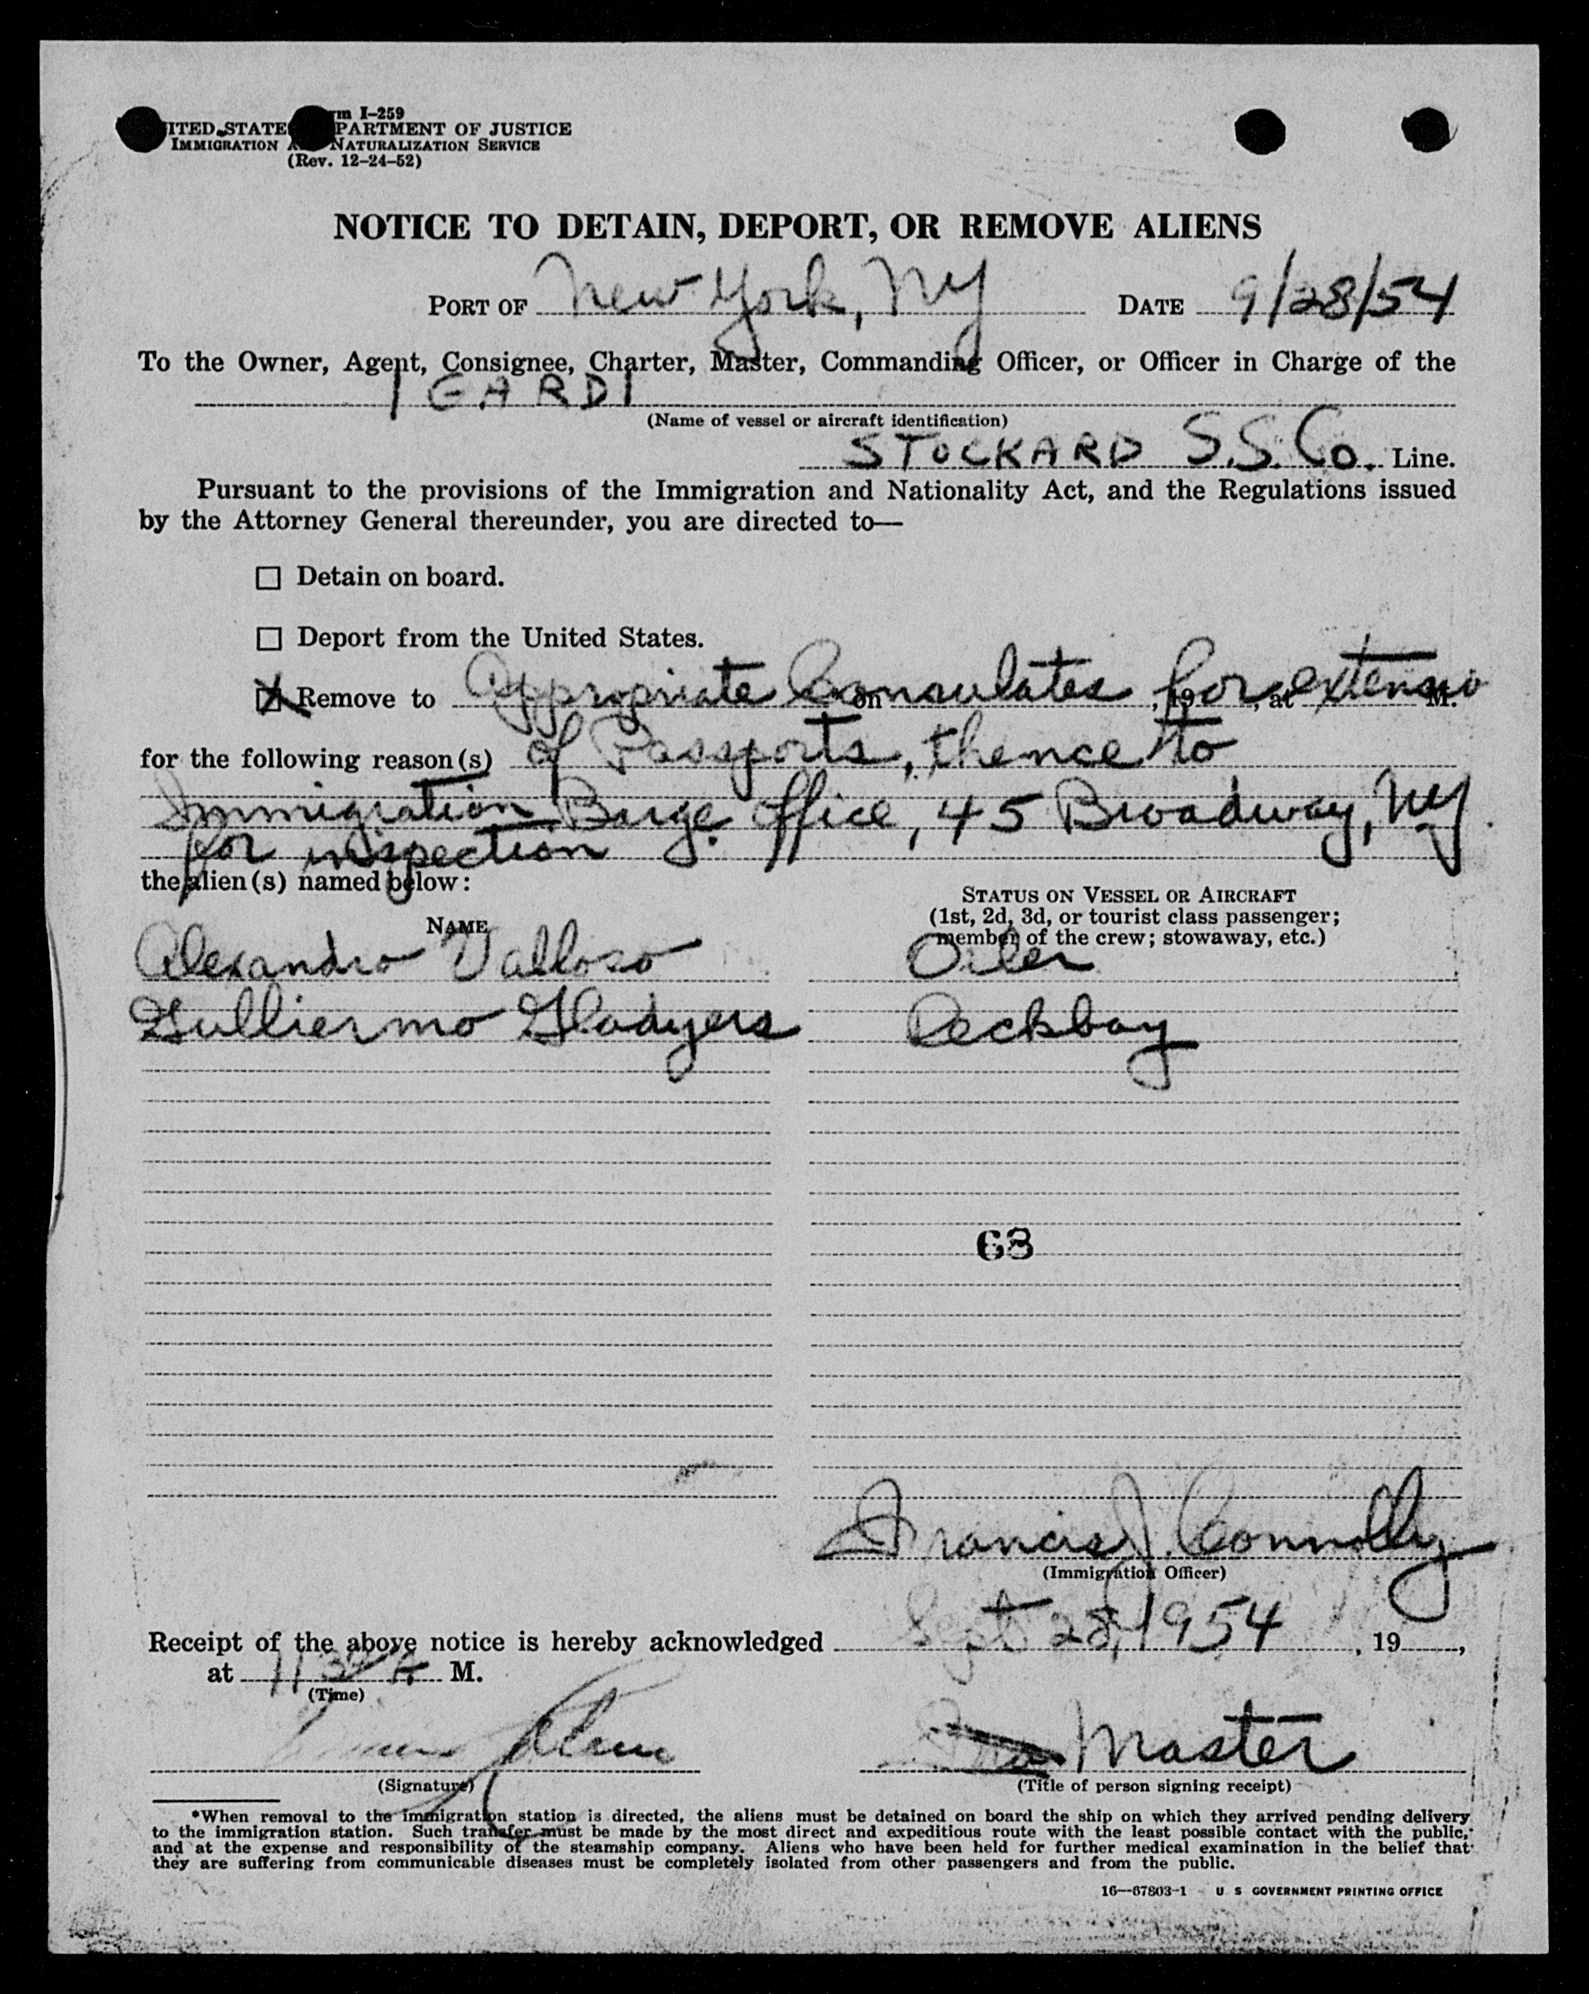 m I-259
ITED STATE PARTMENT OF JUSTICE
IMMIGRATION A NATURALIZATION SERVICE
(Rev. 12-24-52)
NOTICE TO DETAIN, DEPORT, OR REMOVE ALIENS
PORT OF New York, NY DATE 9/28/54
To the Owner, Agent, Consignee, Charter, Master, Commanding Officer, or Officer in Charge of the
IGARDI
(Name of vessel or aircraft identification)
STOCKARD S.S. Co. Line.
Pursuant to the provisions of the Immigration and Nationality Act, and the Regulations issued
by the Attorney General thereunder, you are directed to—
☐ Detain on board.
☐ Deport from the United States.
☒ Remove to Appropriate Consulates for extensio on , 19 , at M.
for the following reason(s) of Passports, thence to
Immigration Barge Office, 45 Broadway, NY
for inspection
the alien(s) named below:
NAME
STATUS ON VESSEL OR AIRCRAFT
(1st, 2d, 3d, or tourist class passenger;
member of the crew; stowaway, etc.)
Alexandro Valloso Oiler
Gulliermo Gladyers Deckboy
63
Francis J. Connolly
(Immigration Officer)
Receipt of the above notice is hereby acknowledged Sept 28, 1954 , 19 ,
at 1130 A M.
(Time)
Master
(Signature) (Title of person signing receipt)
*When removal to the immigration station is directed, the aliens must be detained on board the ship on which they arrived pending delivery
to the immigration station. Such transfer must be made by the most direct and expeditious route with the least possible contact with the public,
and at the expense and responsibility of the steamship company. Aliens who have been held for further medical examination in the belief that
they are suffering from communicable diseases must be completely isolated from other passengers and from the public.
16—67803-1 U S GOVERNMENT PRINTING OFFICE